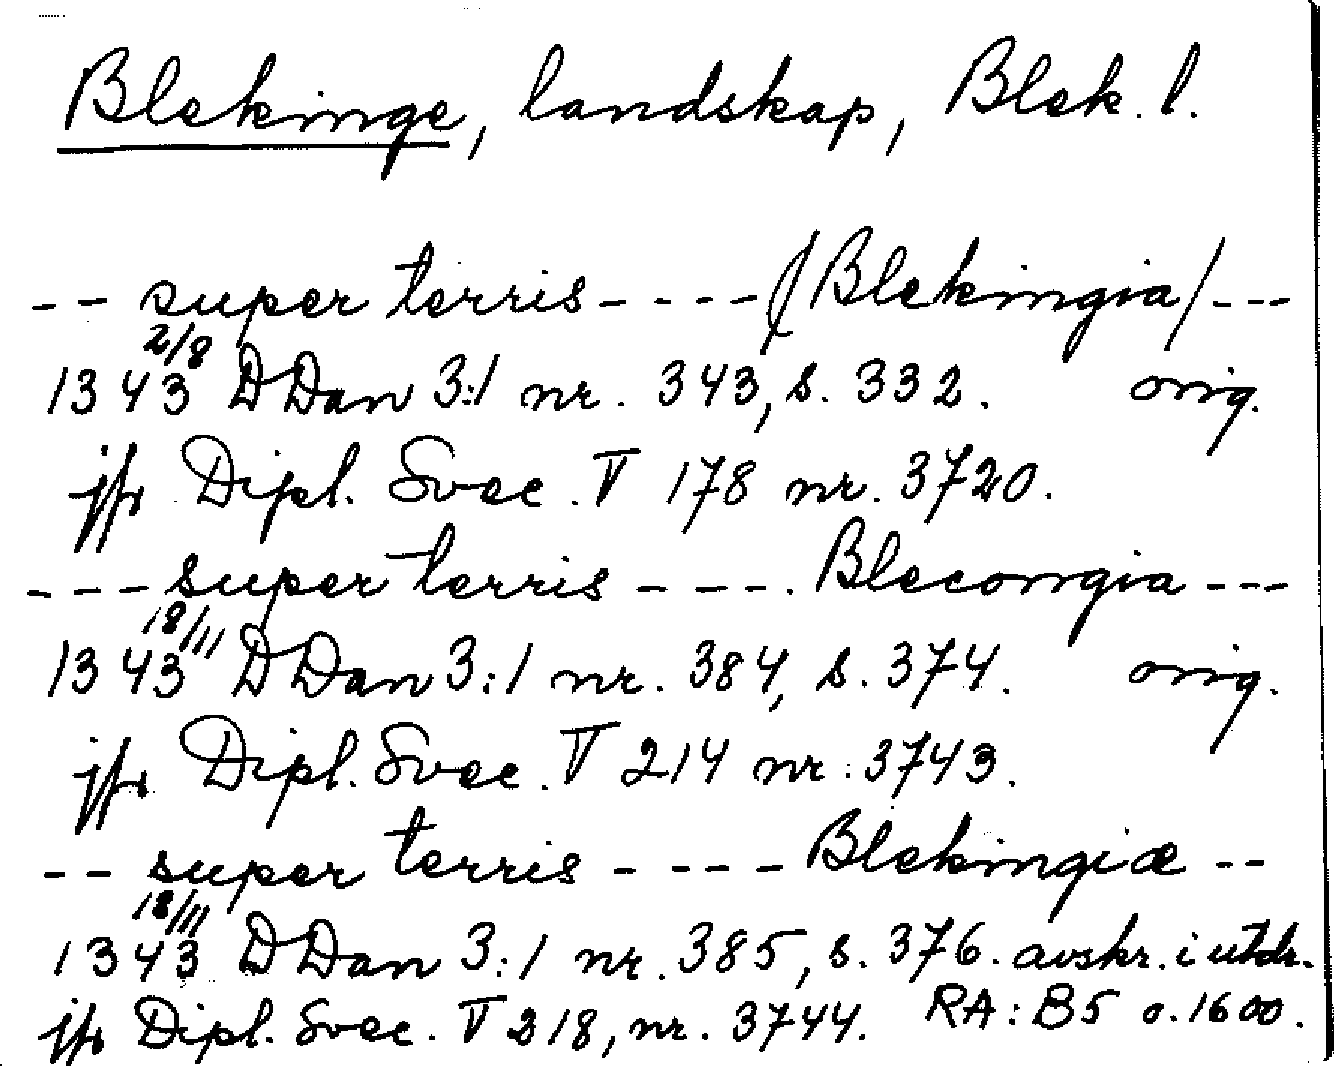 Blekinge, landskap, Blek. l.
-- super terris ---- (/Blekingia/ ---
2/8
1343 DDan 3:1 nr. 343, s. 332. orig.
jfr Dipl. Svec. V 178 nr. 3720.
--- super terris ---. Blecongia ---
18/11
1343 DDan 3:1 nr. 384, s. 374. orig.
jfr Dipl. Svec. V 214 nr. 3743.
-- super terris ---- Blekingiæ --
18/11
1343 DDan 3:1 nr. 385, s. 376. avskr. i utdr.
jfr Dipl. Svec. V 218, nr. 3744. RA: B5 o. 1600.